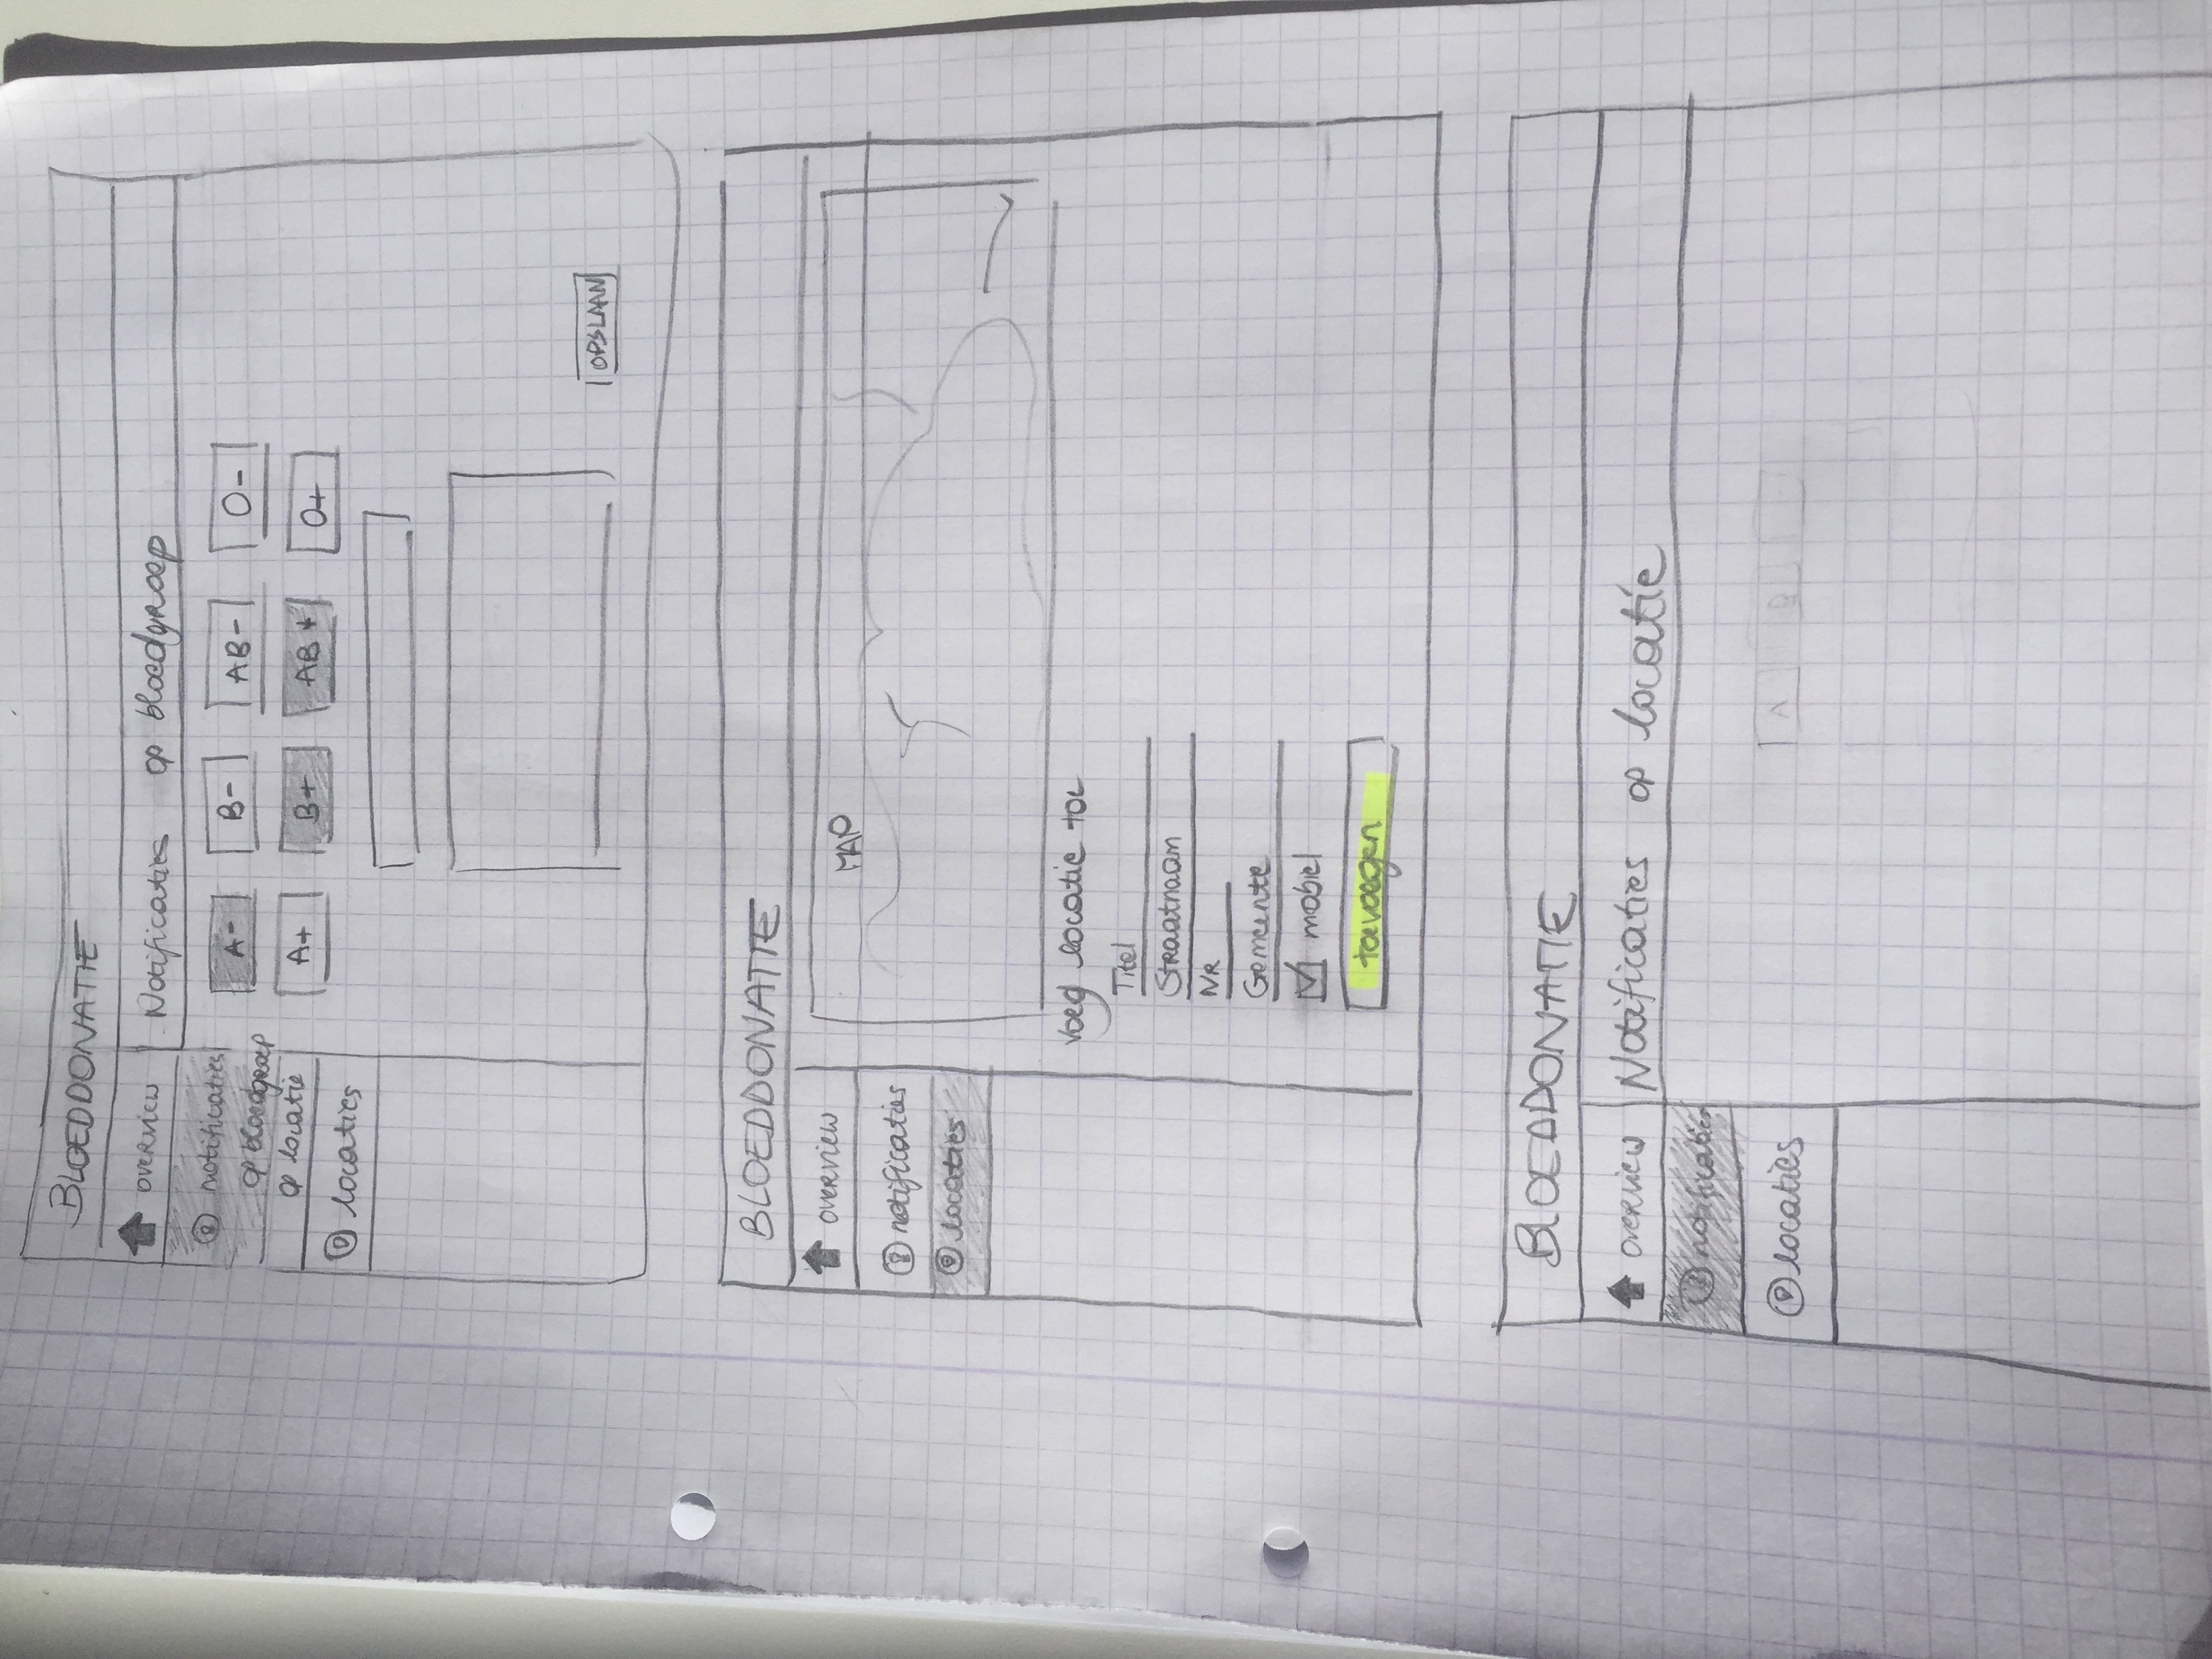 BLOEDDONATIE
overview
Notificaties op bloedgroep
notificaties
op bloedgroep
op locatie
locaties
A- B- AB- O-
A+ B+ AB+ O+
OPSLAAN
BLOEDDONATIE
overview
notificaties
locaties
MAP
Voeg locatie toe
Titel
Straatnaam
NR
Gemeente
mobiel
toevoegen
BLOEDDONATIE
overview
Notificaties op locatie
notificaties
locaties